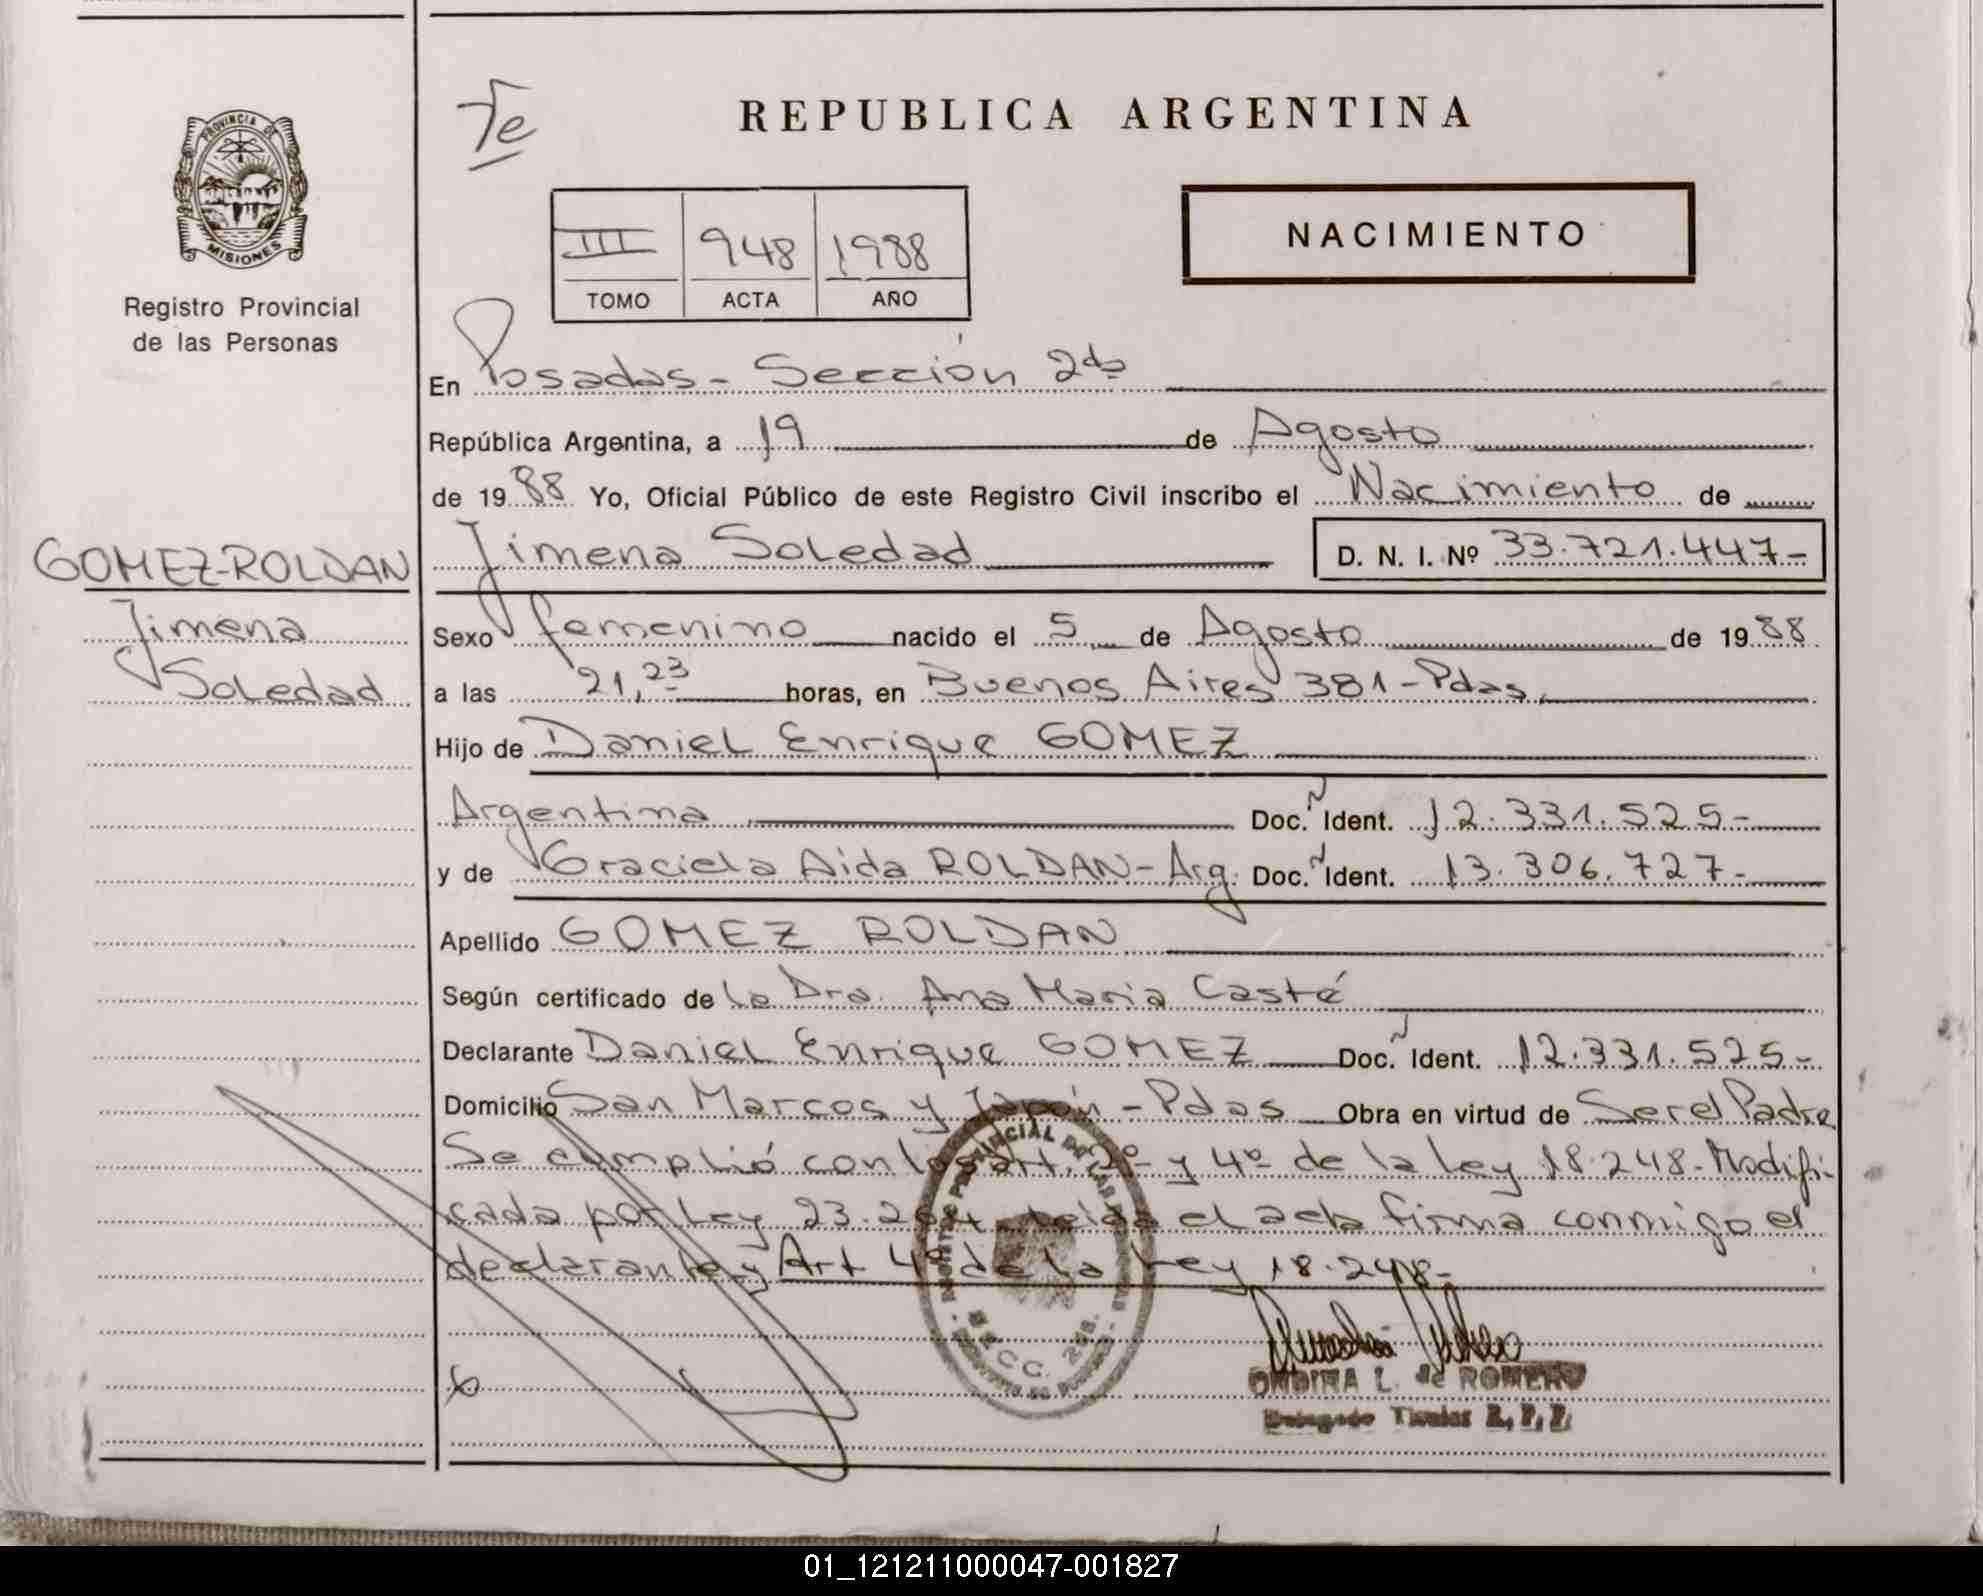 Te
REPUBLICA ARGENTINA
PROVINCIA DE
MISIONES
Registro Provincial
de las Personas
III 948 1988
TOMO ACTA AÑO
NACIMIENTO
En Posadas - Sección 2da
República Argentina, a 19 de Agosto
de 1988 Yo, Oficial Público de este Registro Civil inscribo el Nacimiento de
GOMEZ-ROLDAN
Jimena
Soledad
Jimena Soledad D. N. I. Nº 33.721.447-
Sexo femenino nacido el 5 de Agosto de 1988
a las 21,23 horas, en Buenos Aires 381 - Pdas,
Hijo de Daniel Enrique GOMEZ
Argentina Doc. Ident. 12.331.525-
y de Graciela Aida ROLDAN - Arg. Doc. Ident. 13.306.727-
Apellido GOMEZ ROLDAN
Según certificado de la Dra. Ana Maria Casté
Declarante Daniel Enrique GOMEZ Doc. Ident. 12.331.525-
Domicilio San Marcos y Japón - Pdas Obra en virtud de Ser el Padre
Se cumplió con los art. 2º y 4º de la Ley 18.248- Modifi-
cada por Ley 23.264 leída el acta firma conmigo el
declarante y Art 4º de la Ley 18.248-
SECC. 2da.
ONDINA L. de ROMERO
Delegado Titular R. P. P.
01_121211000047-001827